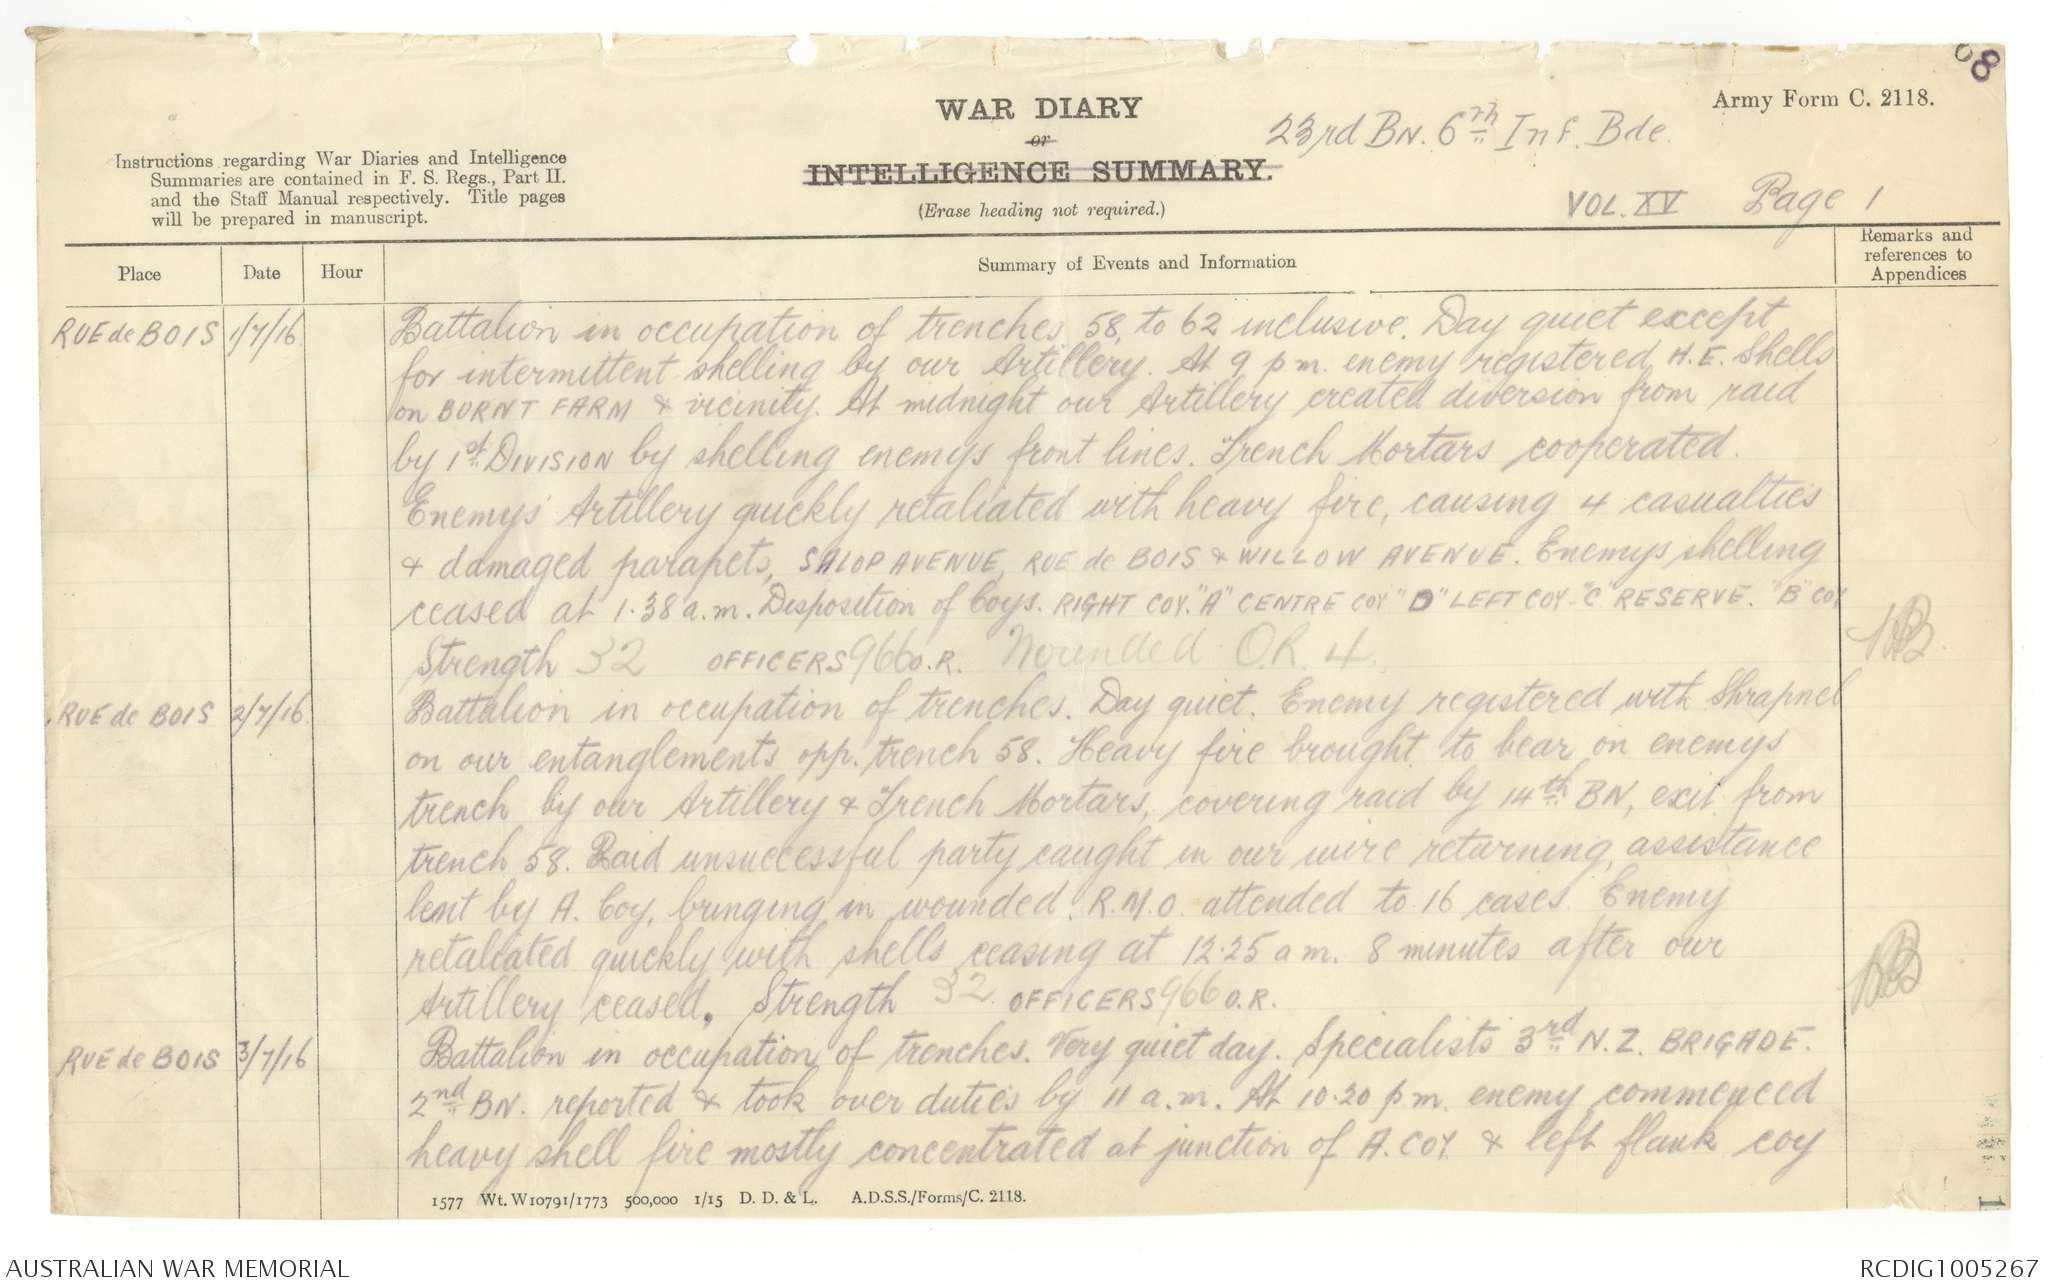 8
Army Form C. 2118.
WAR DIARY
or
INTELLIGENCE SUMMARY.
(Erase heading not required.)
23rd BN. 6th Inf. Bde.
VOL. XV Page 1
Instructions regarding War Diaries and Intelligence
Summaries are contained in F. S. Regs., Part II.
and the Staff Manual respectively. Title pages
will be prepared in manuscript.
Place Date Hour Summary of Events and Information Remarks and references to Appendices
RUE de BOIS 1/7/16 Battalion in occupation of trenches 58, to 62 inclusive. Day quiet except
for intermittent shelling by our Artillery. At 9 pm. enemy registered H.E. Shells
on BURNT FARM & vicinity. At midnight our Artillery created diversion from raid
by 1st DIVISION by shelling enemys front lines. Trench Mortars cooperated.
Enemys Artillery quickly retaliated with heavy fire, causing 4 casualties
& damaged parapets, SALOP AVENUE, RUE de BOIS & WILLOW AVENUE. Enemys shelling
ceased at 1.38 a.m. Disposition of Coys. RIGHT COY. "A" CENTRE COY "D" LEFT COY - "C" RESERVE. "B" COY
Strength 32 OFFICERS 966 O.R. Wounded O.R. 4.
RUE de BOIS 2/7/16. Battalion in occupation of trenches. Day quiet. Enemy registered with Shrapnel
on our entanglements opp. trench 58. Heavy fire brought to bear on enemys
trench by our Artillery & Trench Mortars, covering raid by 14th BN, exit from
trench 58. Raid unsuccessful party caught in our wire returning, assistance
lent by A. Coy, bringing in wounded. R.M.O. attended to 16 cases. Enemy
retaliated quickly with shells ceasing at 12.25 am. 8 minutes after our
Artillery ceased. Strength 32 OFFICERS 966 O.R.
RUE de BOIS 3/7/16 Battalion in occupation of trenches. Very quiet day. Specialists 3rd N.Z. BRIGADE.
2nd BN. reported & took over duties by 11 a.m. At 10.20 pm. enemy commenced
heavy shell fire mostly concentrated at junction of A. COY. & left flank coy
1577 Wt. W10791/1773 500,000 1/15 D. D. & L. A.D.S.S./Forms/C. 2118.
AUSTRALIAN WAR MEMORIAL RCDIG1005267